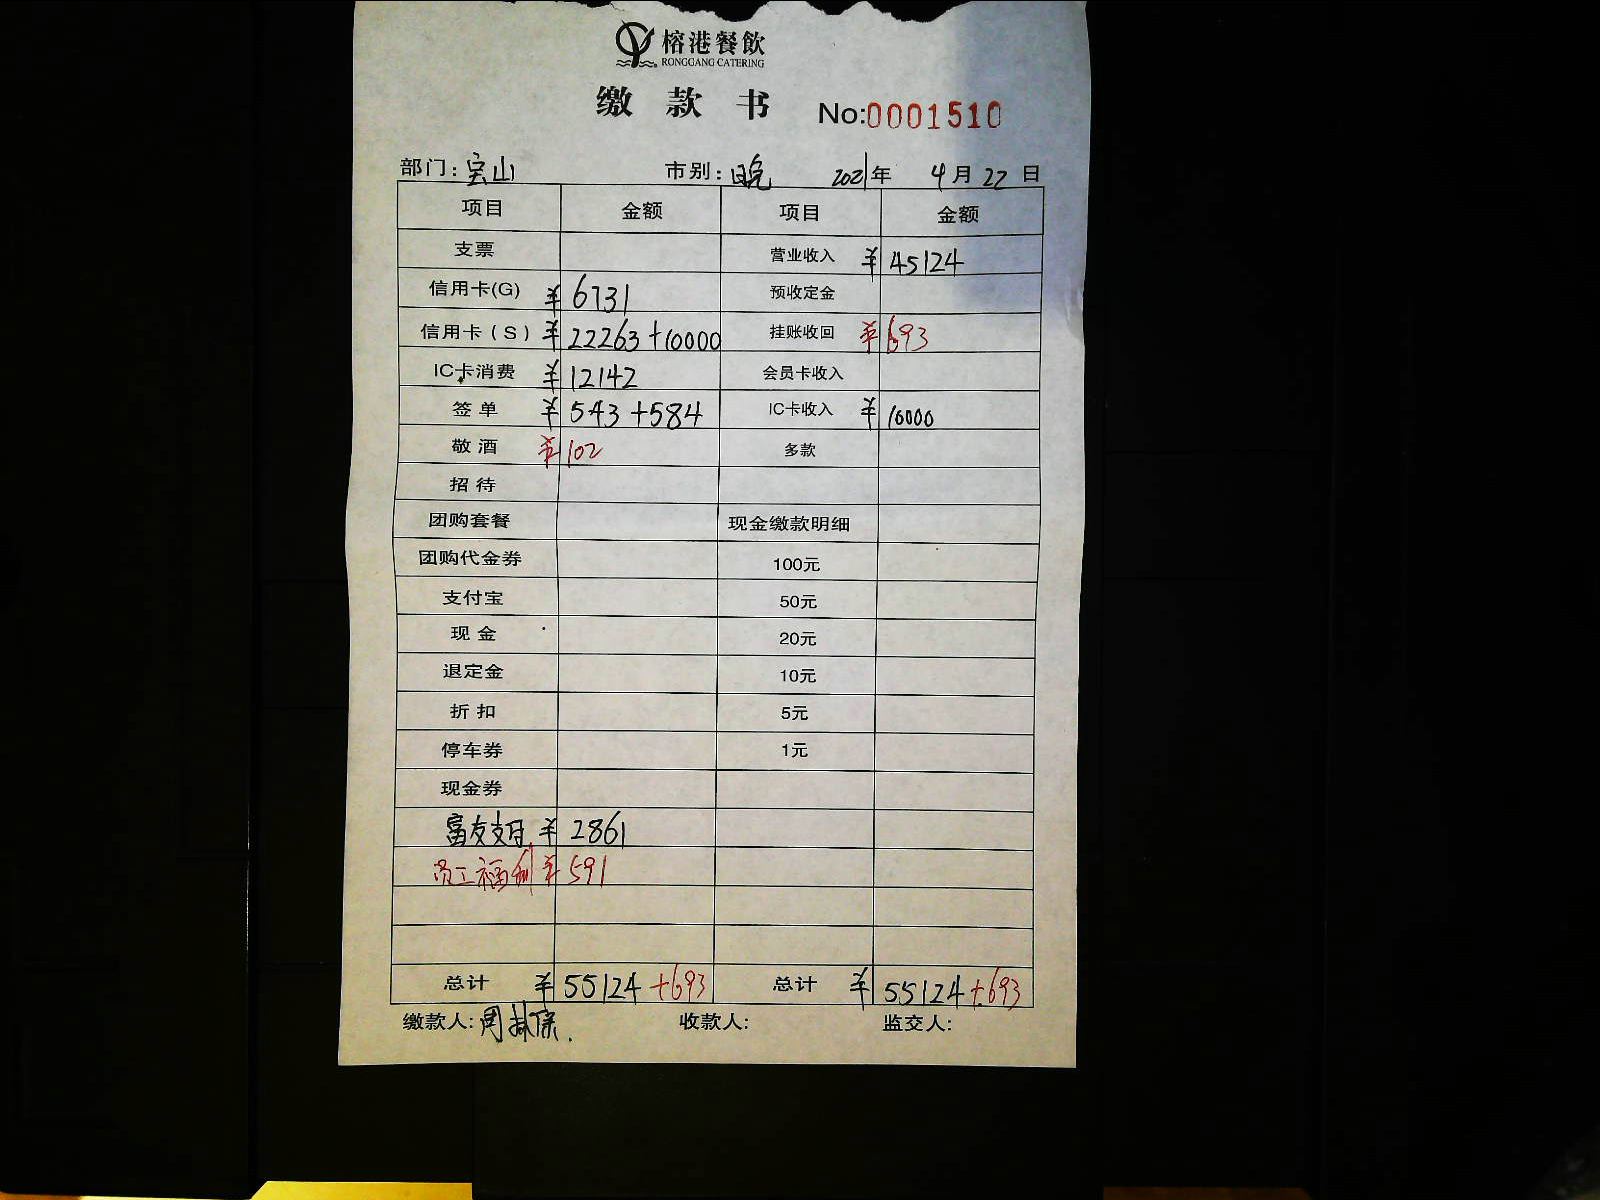 榕港餐飲
RONGGANG CATERING
缴款书 No:0001510
部门:宝山 市别:晚 2021年 4月22日
项目 金额 项目 金额
支票 营业收入 ¥45124
信用卡(G) ¥6731 预收定金
信用卡(S) ¥22263+10000 挂账收回 ¥693
IC卡消费 ¥12142 会员卡收入
签单 ¥543+584 IC卡收入 ¥10000
敬酒 ¥102 多款
招待
团购套餐 现金缴款明细
团购代金券 100元
支付宝 50元
现金 20元
退定金 10元
折扣 5元
停车券 1元
现金券
富友支付 ¥2861
员工福利 ¥591
总计 ¥55124+693 总计 ¥55124+693
缴款人:周 收款人: 监交人: